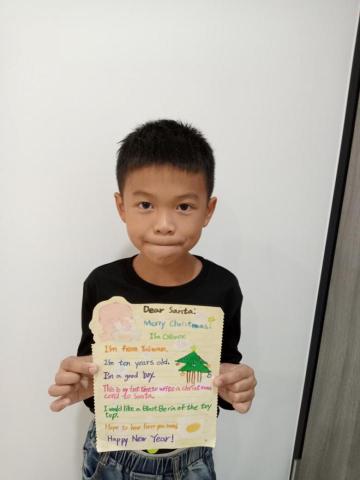 Dear Santa:
Merry Christmas!
I'm
I'm from Taiwan.
I'm ten years old.
I'm a good boy.
This is my first time to write a christmas
card to Santa.
I would like a Blast Beria of the toy
top.
Hope to hear from you soon.
Happy New Year!